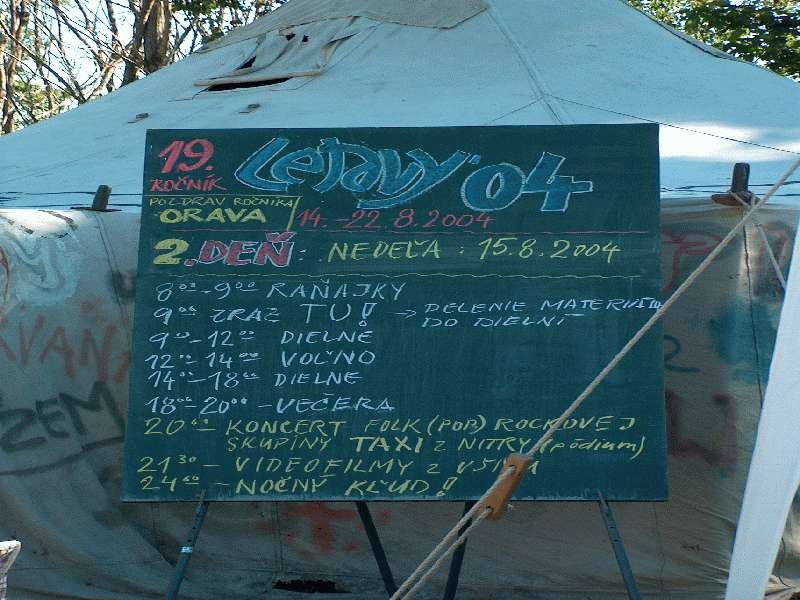 19. ROČNÍK
Letavy '04
POZDRAV ROČNÍKA
ORAVA
14.-22.8.2004
2.DEŇ: NEDEĽA: 15.8.2004
8⁰⁰-9⁰⁰ RAŇAJKY
9⁰⁰ ZRAZ TU! → DELENIE MATERIÁLU
DO DIELNÍ
9³⁰-12⁰⁰ DIELNE
12⁰⁰-14⁰⁰ VOĽNO
14⁰⁰-18⁰⁰ DIELNE
18⁰⁰-20⁰⁰ -VEČERA
20⁰⁰ KONCERT FOLK(POP)ROCKOVEJ
SKUPINY TAXI z NITRY (pódium)
21³⁰ - VIDEOFILMY z
24⁰⁰ - NOČNÝ KĽUD!
ZEM